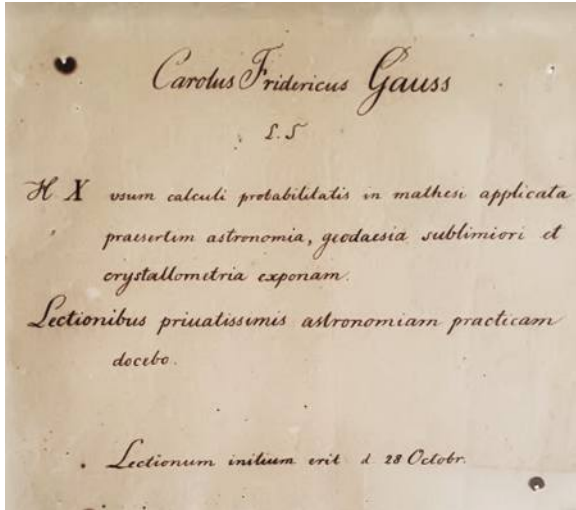 Carolus Fridericus Gauss
L. S
H X vsum calculi probabilitatis in mathesi applicata
praesertim astronomia, geodaesia sublimiori et
crystallometria exponam.
Lectionibus priuatissimis astronomiam practicam
docebo.
Lectionum initium erit d 28 Octobr.